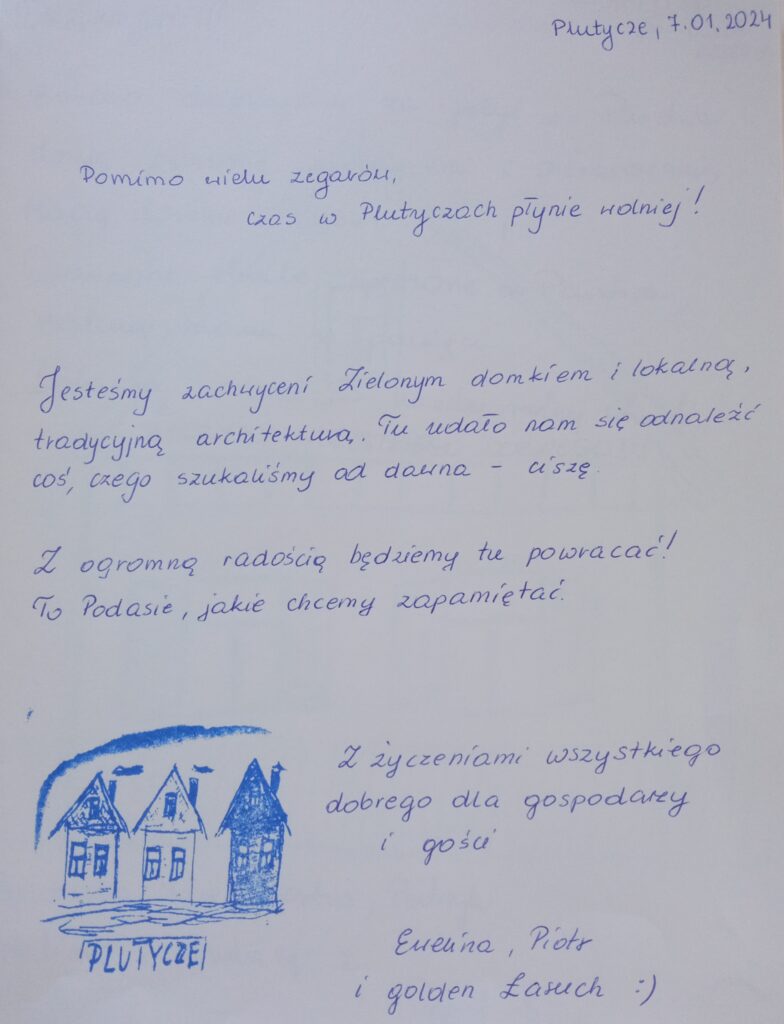 Plutycze, 7.01.2024
Pomimo wielu zegarów,
czas w Plutyczach płynie wolniej!
Jesteśmy zachwyceni Zielonym domkiem i lokalną,
tradycyjną architekturą. Tu udało nam się odnaleźć
coś, czego szukaliśmy od dawna - ciszę.
Z ogromną radością będziemy tu powracać!
To Podasie, jakie chcemy zapamiętać.
Z życzeniami wszystkiego
dobrego dla gospodarzy
i gości
Ewelina, Piotr
i golden Łasuch :)
PLUTYCZE